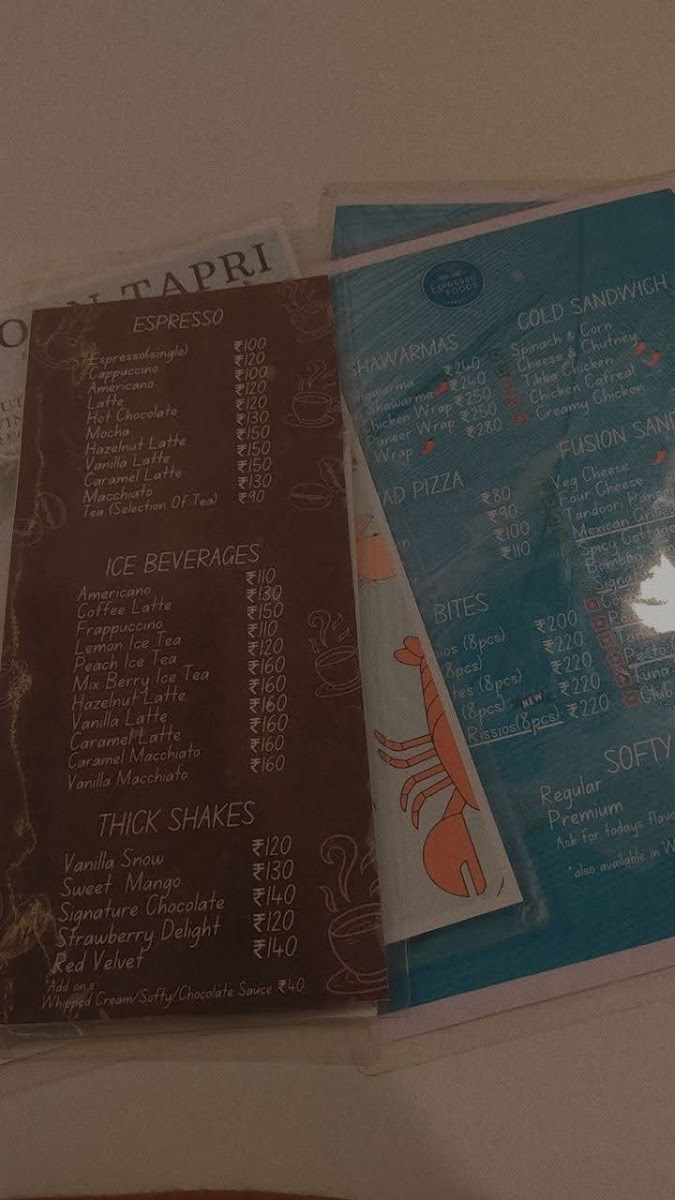 TAPRI
ESPRESSO
Espresso(single) ₹100
Cappuccino ₹120
Americano ₹100
Latte ₹120
Hot Chocolate ₹120
Mocha ₹130
Hazelnut Latte ₹150
Vanilla Latte ₹150
Caramel Latte ₹150
Macchiato ₹130
Tea (Selection Of Tea) ₹90
ICE BEVERAGES
Americano ₹110
Coffee Latte ₹130
Frappuccino ₹150
Lemon Ice Tea ₹110
Peach Ice Tea ₹120
Mix Berry Ice Tea ₹160
Hazelnut Latte ₹160
Vanilla Latte ₹160
Caramel Latte ₹160
Caramel Macchiato ₹160
Vanilla Macchiato ₹160
THICK SHAKES
Vanilla Snow ₹120
Sweet Mango ₹130
Signature Chocolate ₹140
Strawberry Delight ₹120
Red Velvet ₹140
*Add ons
Whipped Cream/Softy/Chocolate Sauce ₹40
ESPRESSO
FOODS
SHAWARMAS
Shawarma ₹240
Shawarma ₹240
Chicken Wrap ₹250
Paneer Wrap ₹250
Wrap ₹280
PIZZA
₹80
₹90
₹100
₹110
BITES
(8pcs) ₹200
(8pcs) ₹220
(8pcs) ₹220
(8pcs) NEW ₹220
Rissios(8pcs) ₹220
COLD SANDWICH
Spinach & Corn
Cheese & Chutney
Tikka Chicken
Chicken Cafreal
Creamy Chicken
FUSION
Veg Cheese
Four Cheese
Tandoori
Mexican
Spicy
Tuna
Club
SOFTY
Regular
Premium
Ask for todays
*also available in